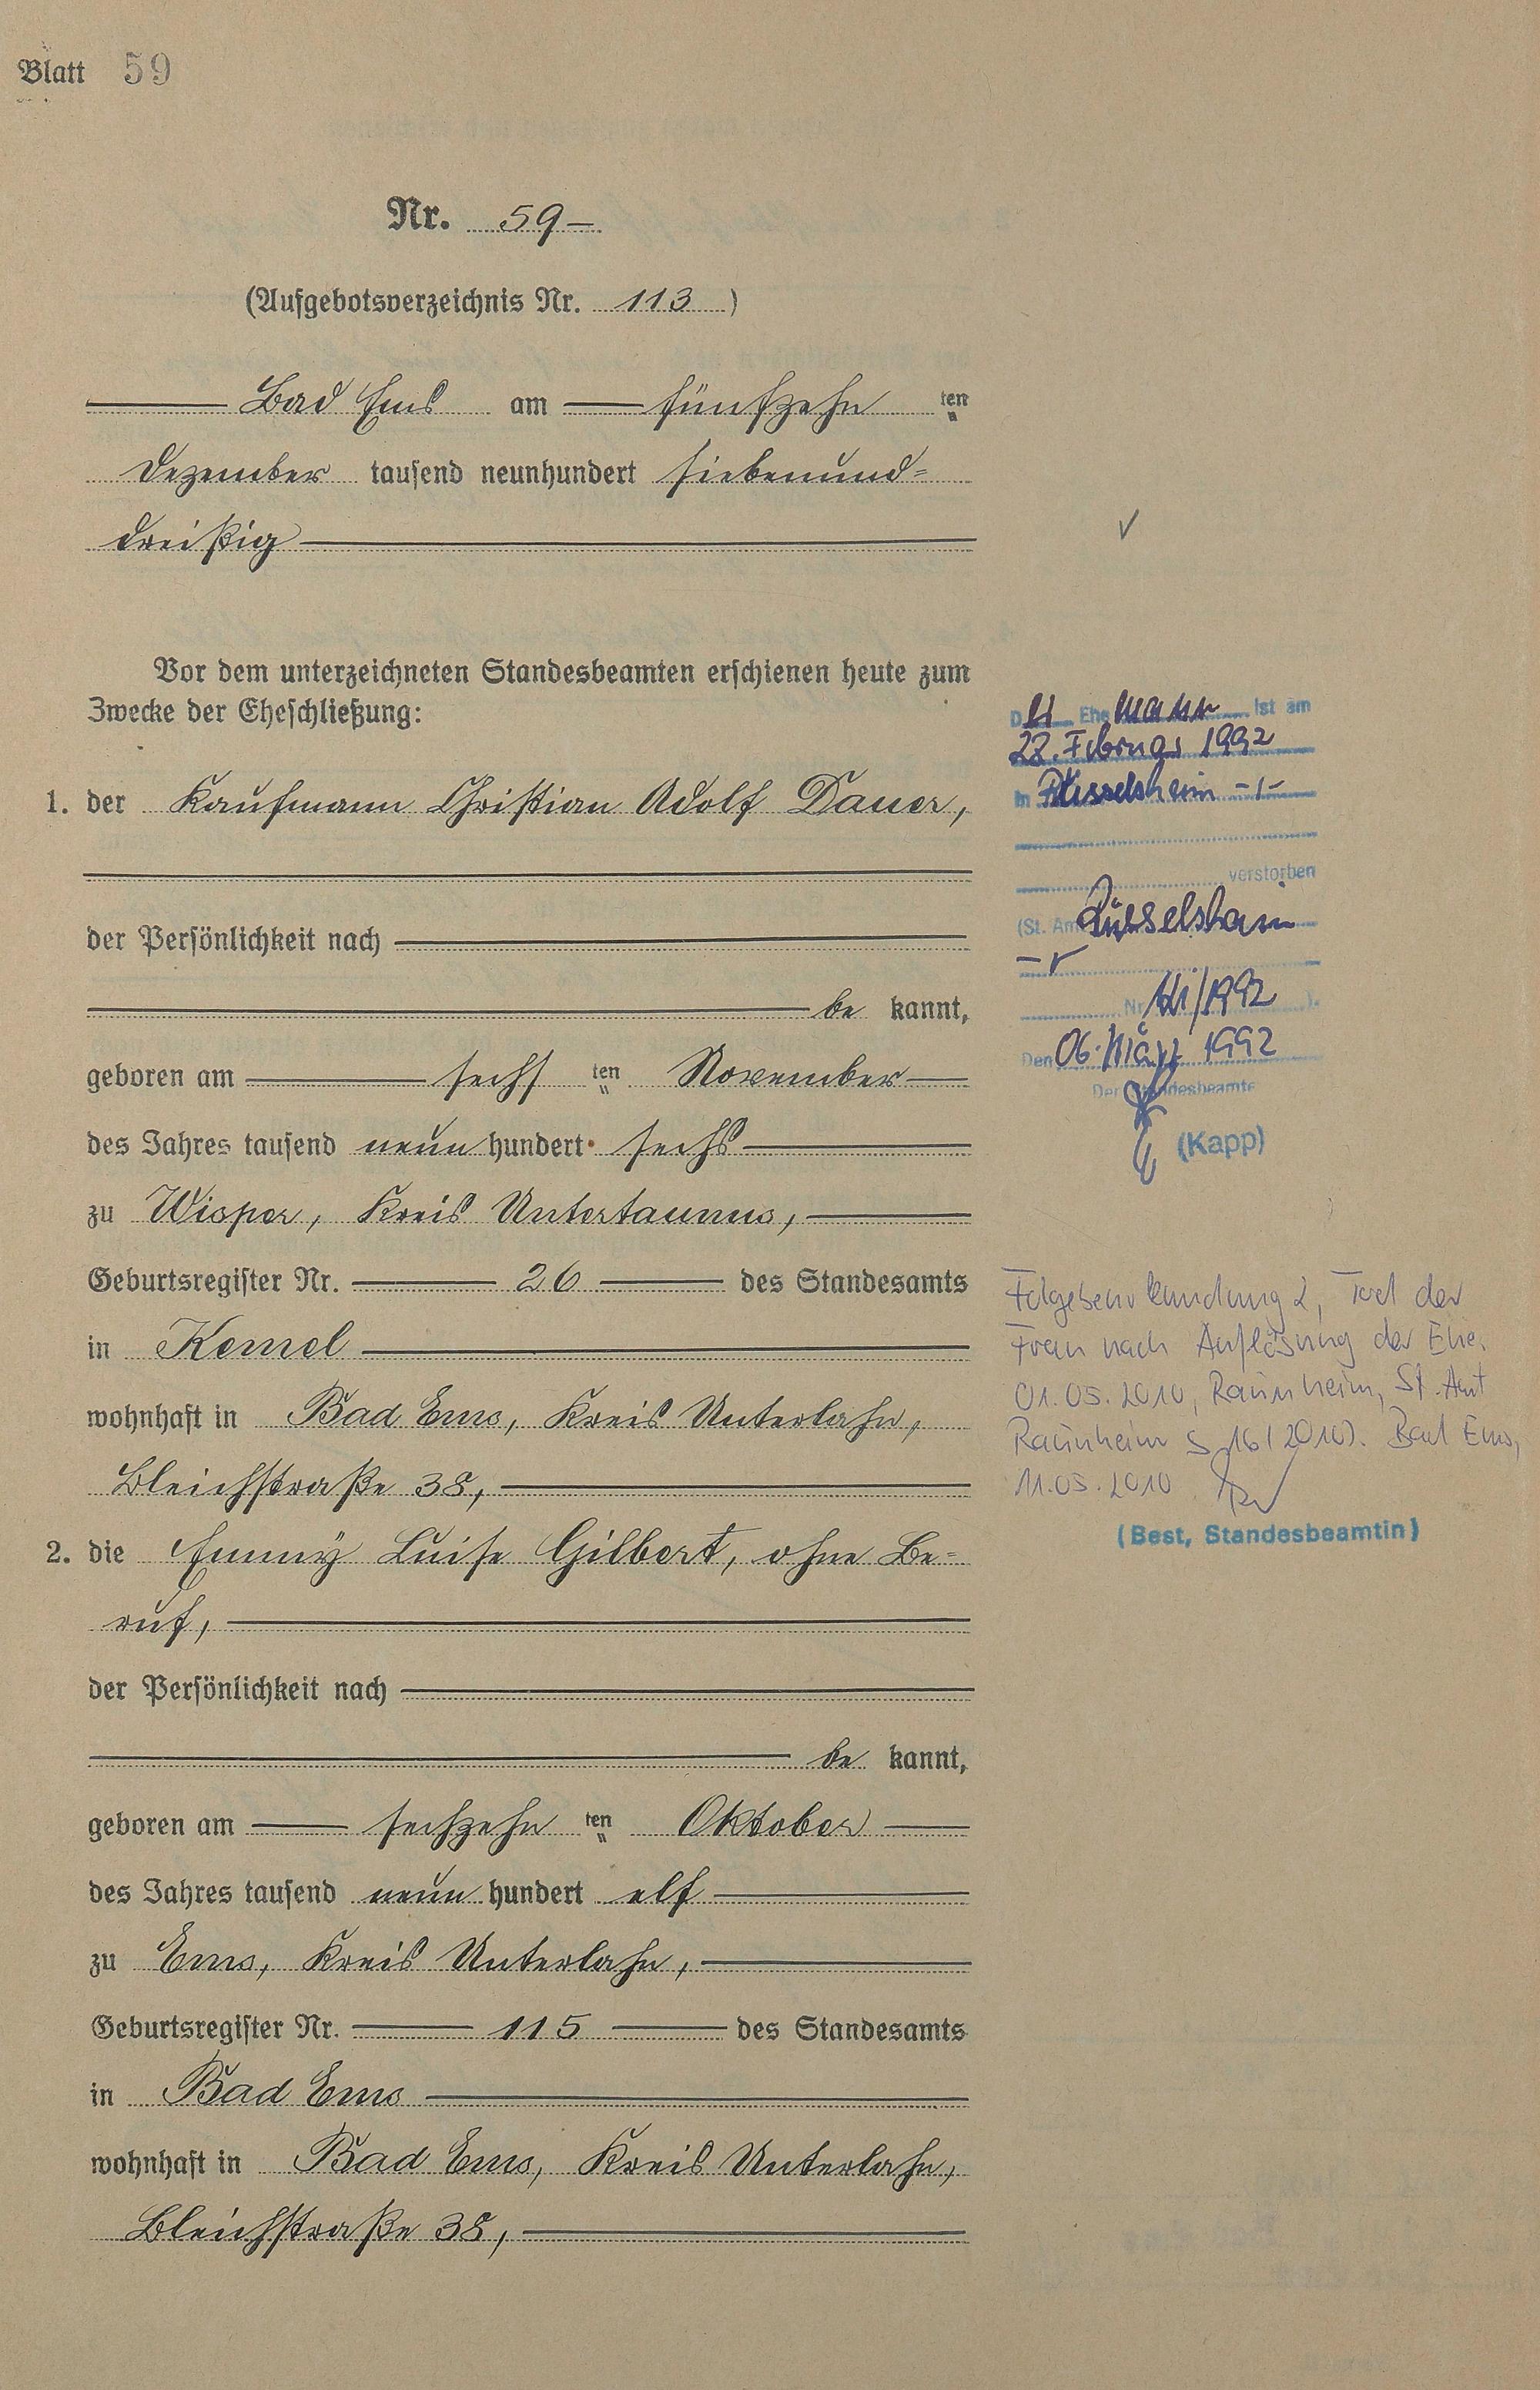 Blatt 59
Nr. 59
(Aufgebotsverzeichnis Nr. 113)
Bad Ems am fünfzehn ten
Dezember tausend neunhundert siebenund-
dreißig
Vor dem unterzeichneten Standesbeamten erschienen heute zum
Zwecke der Eheschließung:
1. der Kaufmann Christian Adolf Dauer,
der Persönlichkeit nach
be kannt,
geboren am sechs ten November
des Jahres tausend neun hundert sechs
zu Wisper, Kreis Untertaunus,
Geburtsregister Nr. 26 des Standesamts
in Kemel
wohnhaft in Bad Ems, Kreis Unterlahn,
Bleichstraße 38,
2. die Emmy Luise Gilbert, ohne Be-
ruf,
der Persönlichkeit nach
be kannt,
geboren am sechzehn ten Oktober
des Jahres tausend neun hundert elf
zu Ems, Kreis Unterlahn,
Geburtsregister Nr. 115 des Standesamts
in Bad Ems
wohnhaft in Bad Ems, Kreis Unterlahn,
Bleichstraße 38,
Der Ehemann ist am
22. Februar 1992
in Rüsselsheim -/-
verstorben
(St. Amt Rüsselsheim
Nr. /1992 ).
Den 06. März 1992
Der Standesbeamte
(Kapp)
Folgebeurkundung 2, Tod der
Frau nach Auflösung der Ehe.
01.05.2010, Raunheim, St. Amt
Raunheim S 16/2010). Bad Ems,
11.05.2010
(Best, Standesbeamtin)